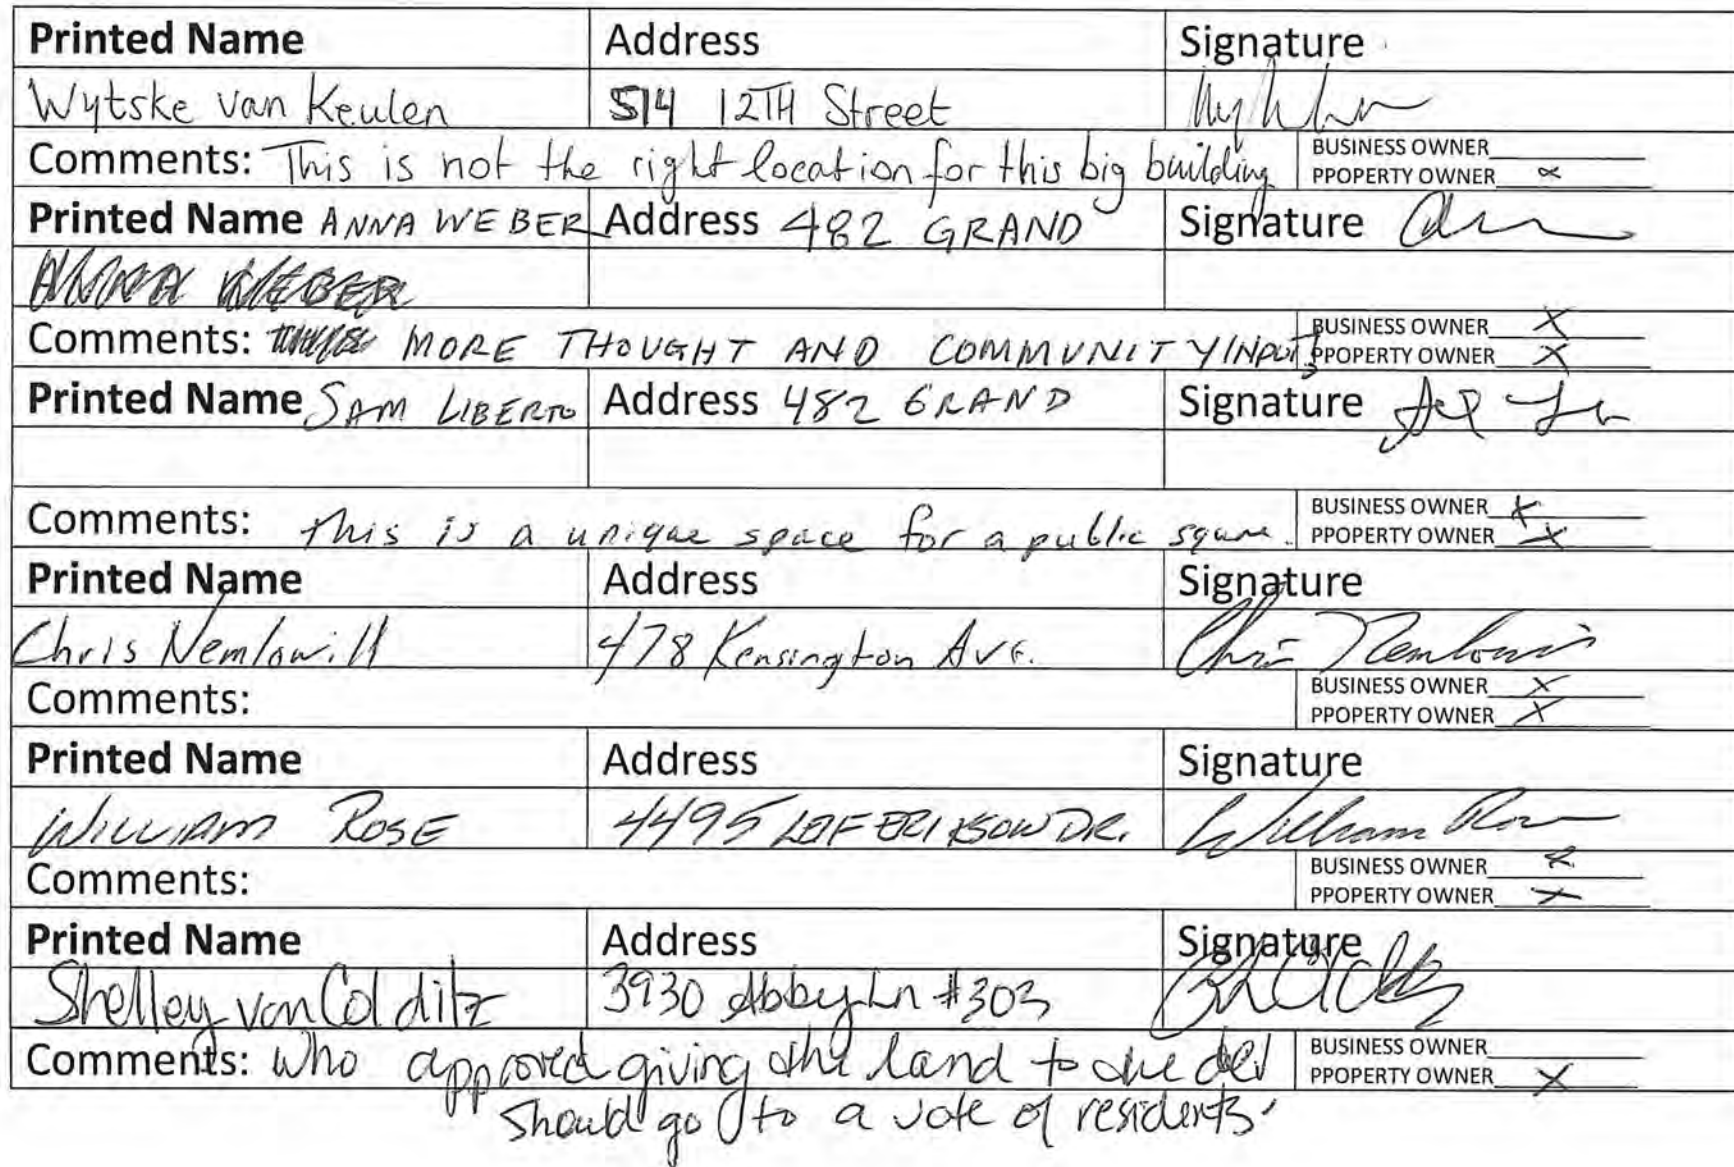 Printed Name Address Signature
Wytske van Keulen 514 12TH Street
Comments: This is not the right location for this big building BUSINESS OWNER
PPOPERTY OWNER x
Printed Name ANNA WEBER Address 482 GRAND Signature
ANNA WEBER
Comments: MORE THOUGHT AND COMMUNITY INPUT! BUSINESS OWNER X
PPOPERTY OWNER X
Printed Name SAM LIBERTO Address 482 GRAND Signature
Comments: this is a unique space for a public square. BUSINESS OWNER X
PPOPERTY OWNER X
Printed Name Address Signature
Chris Nemlowill 478 Kensington Ave. Chris Nemlowill
Comments: BUSINESS OWNER X
PPOPERTY OWNER X
Printed Name Address Signature
WILLIAM ROSE 4495 LEIF ERIKSON DR. William Rose
Comments: BUSINESS OWNER X
PPOPERTY OWNER X
Printed Name Address Signature
Shelley von Colditz 3930 Abbey Ln #303
Comments: Who approved giving the land to the dev BUSINESS OWNER
PPOPERTY OWNER X
should go to a vote of residents.